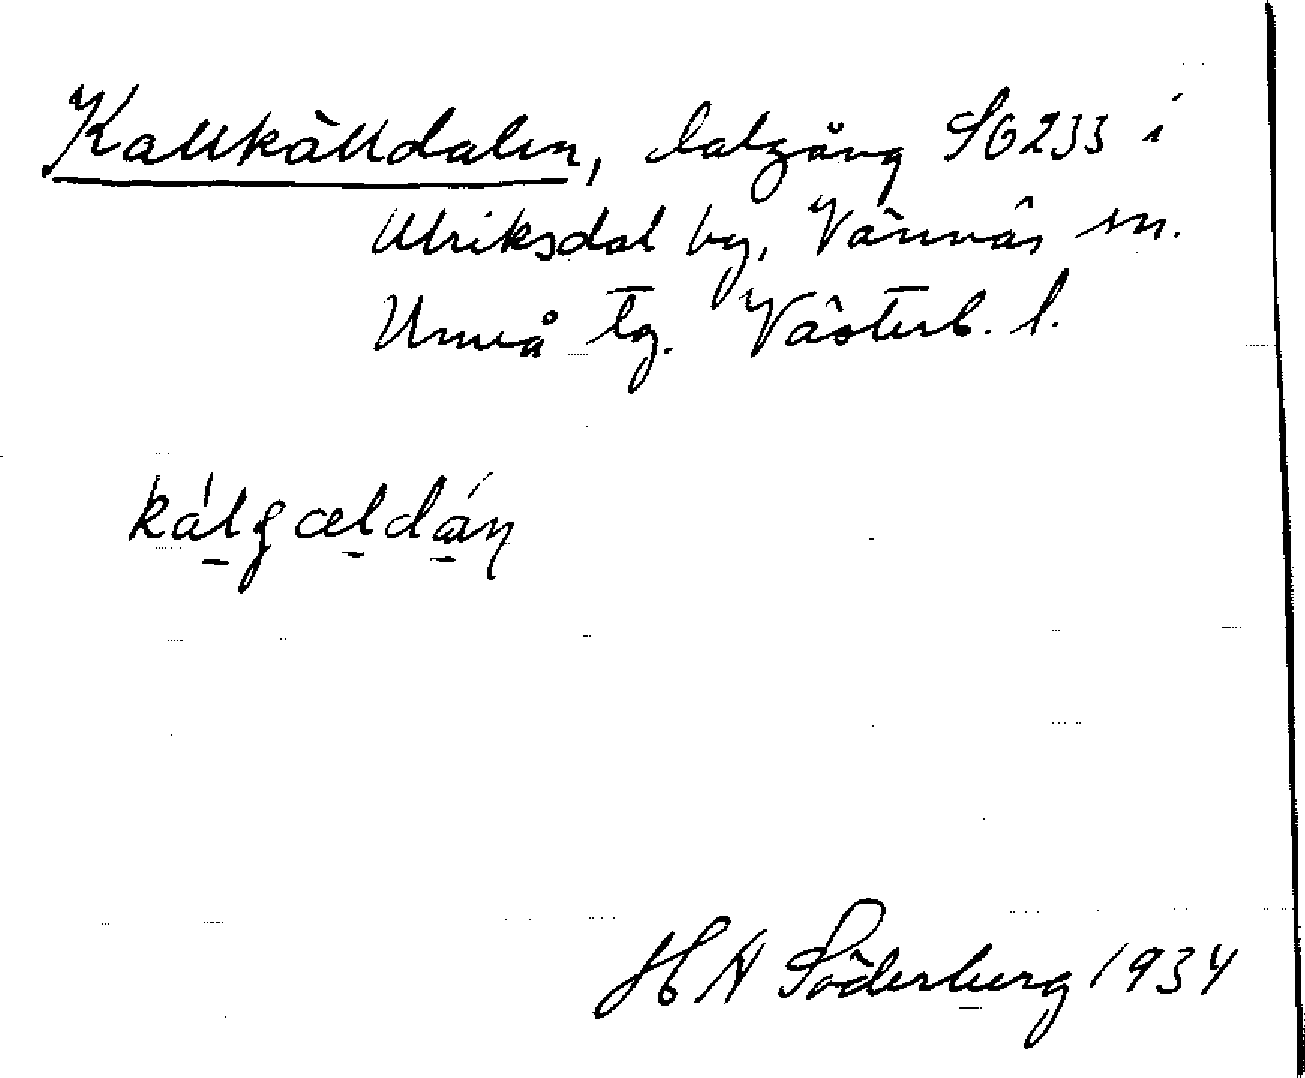 Kallkälldalen, dalgång SG233 i
Ulriksdal by, Vännäs sn.
Umeå tg. Västerb. l.
kálgældán
H A Söderberg 1934